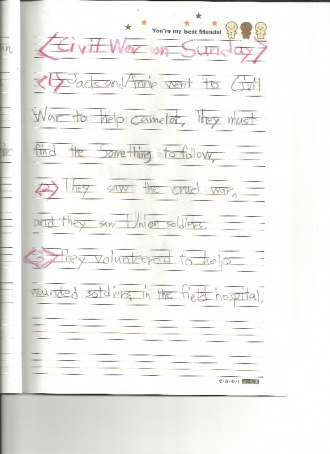 You're my best friends!
<Civil War on Sunday>
<1> Jack and Annie went to Civil
War to help Camelot. They must
find the Something to follow.
<2> They saw the cruel war,
and they saw Union soldiers.
<3> They volunteered to help
wounded soldiers in the field hospital.